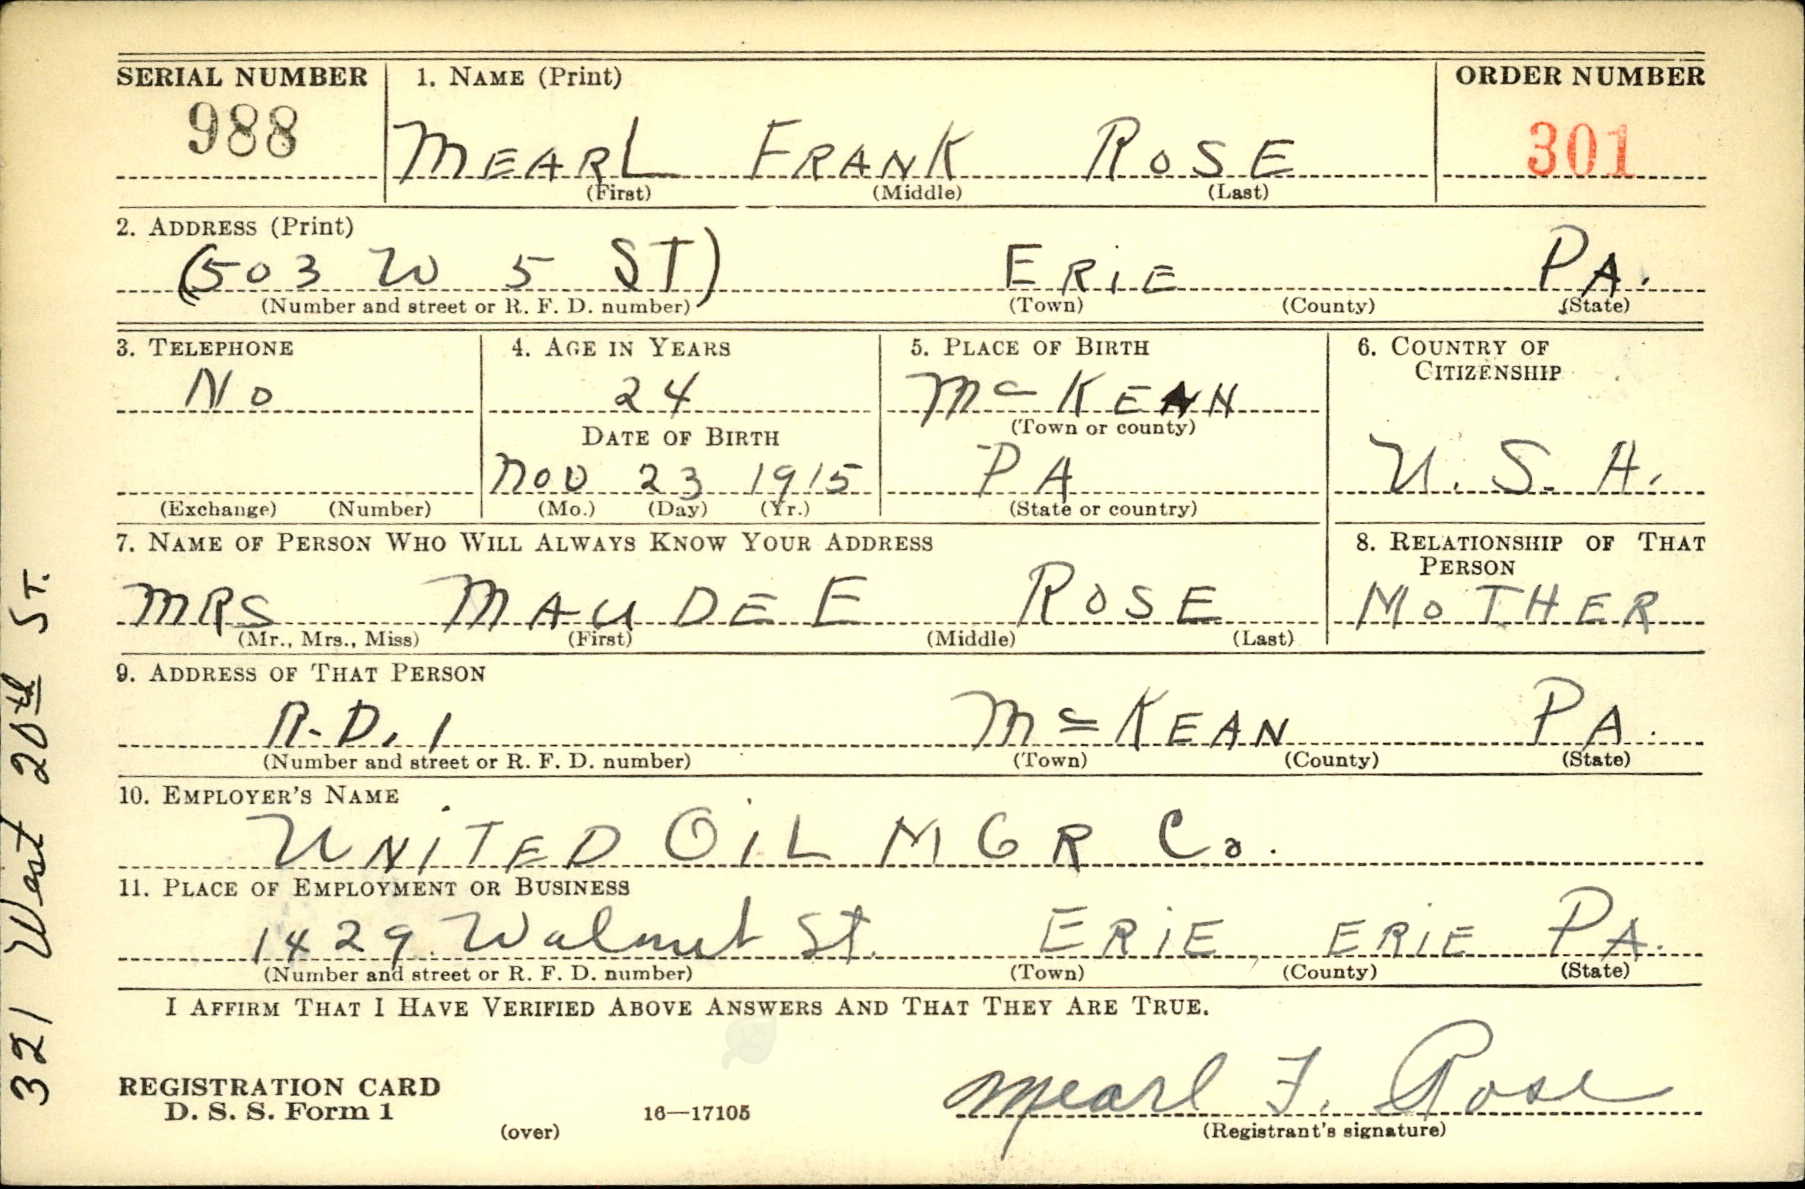 SERIAL NUMBER 1. NAME (Print) ORDER NUMBER
988 MEARL FRANK ROSE 301
(First) (Middle) (Last)
2. ADDRESS (Print)
(503 W 5 ST) ERIE PA.
(Number and street or R. F. D. number) (Town) (County) (State)
3. TELEPHONE 4. AGE IN YEARS 5. PLACE OF BIRTH 6. COUNTRY OF
CITIZENSHIP
No 24 McKEAN
(Town or county)
DATE OF BIRTH
Nov 23 1915 PA U. S. A.
(Exchange) (Number) (Mo.) (Day) (Yr.) (State or country)
7. NAME OF PERSON WHO WILL ALWAYS KNOW YOUR ADDRESS 8. RELATIONSHIP OF THAT
PERSON
MRS MAUDE E ROSE MOTHER
(Mr., Mrs., Miss) (First) (Middle) (Last)
9. ADDRESS OF THAT PERSON
R.D. 1 McKEAN PA.
(Number and street or R. F. D. number) (Town) (County) (State)
10. EMPLOYER'S NAME
UNITED OIL MGR Co.
11. PLACE OF EMPLOYMENT OR BUSINESS
1429 Walnut St. ERIE ERIE PA.
(Number and street or R. F. D. number) (Town) (County) (State)
I AFFIRM THAT I HAVE VERIFIED ABOVE ANSWERS AND THAT THEY ARE TRUE.
REGISTRATION CARD Mearl F. Rose
D. S. S. Form 1 16—17105
(over) (Registrant's signature)
321 West 20th ST.